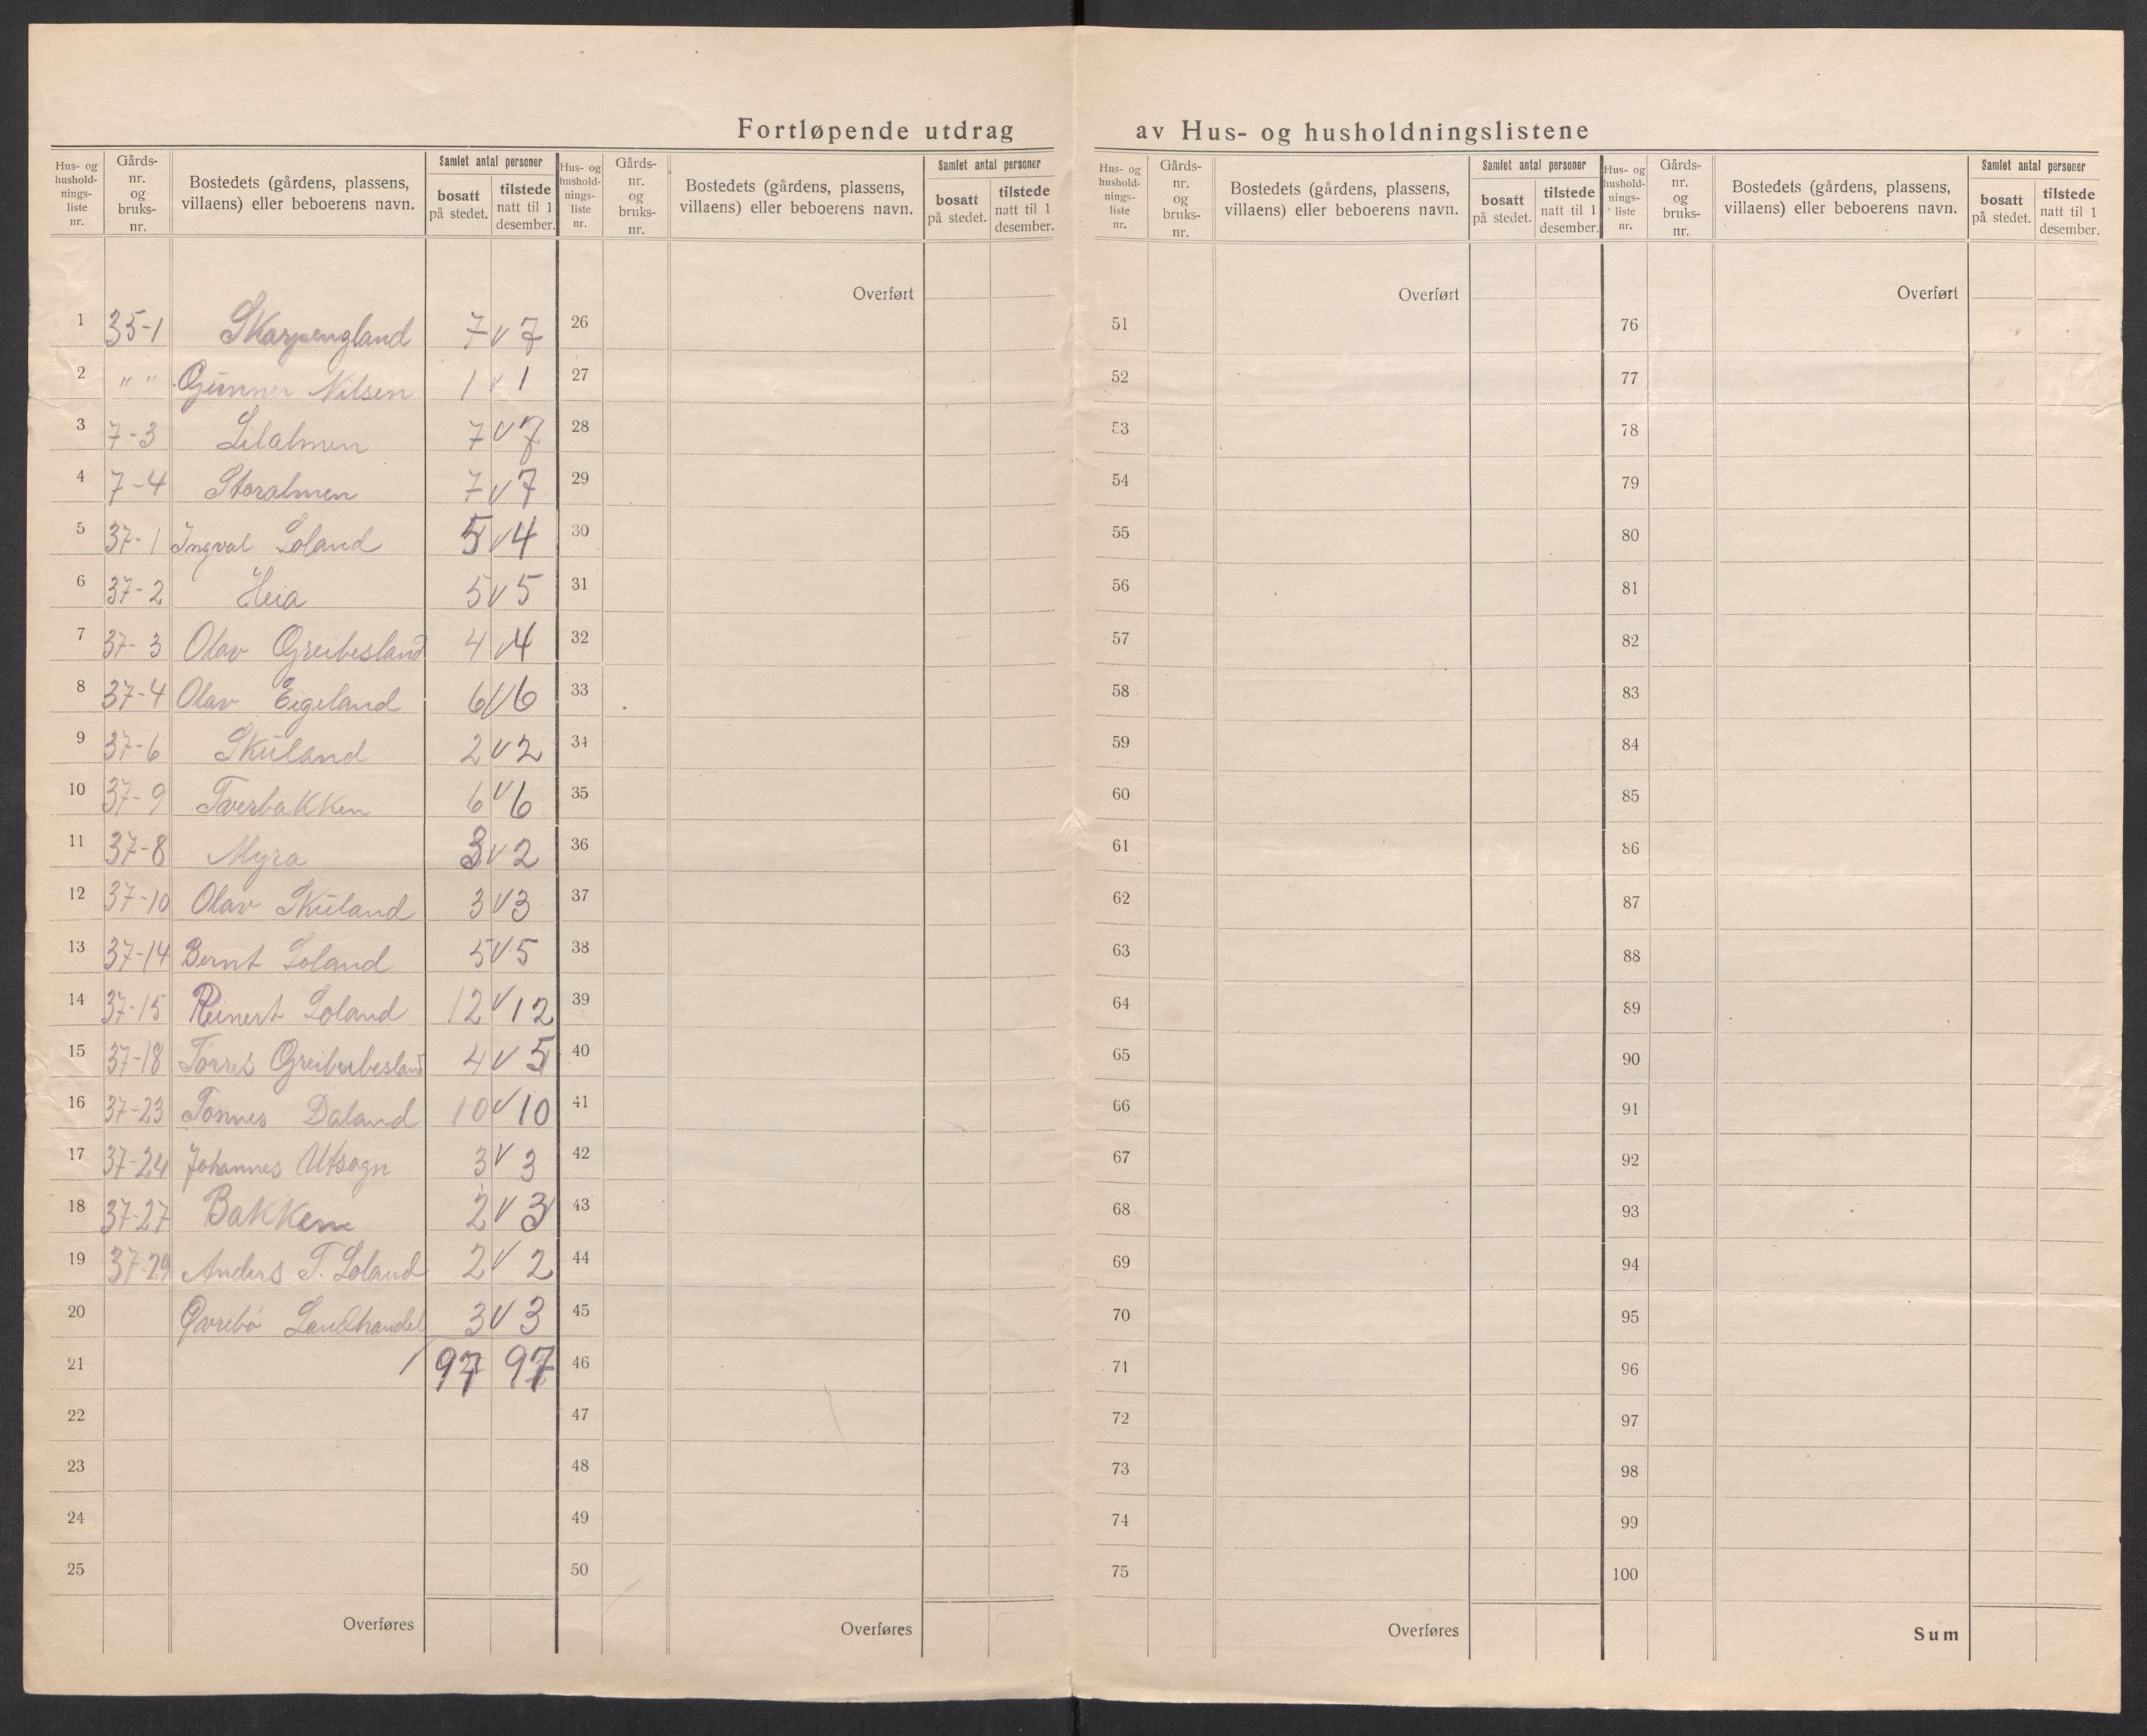 Fortløpende utdrag av Hus- og husholdningslistene
Hus- og husholdningsliste nr. | Gårds-nr. og bruks-nr. | Bostedets (gårdens, plassens, villaens) eller beboerens navn. | Samlet antal personer | bosatt på stedet. | tilstede natt til 1 desember.
Hus- og husholdningsliste nr. | Gårds-nr. og bruks-nr. | Bostedets (gårdens, plassens, villaens) eller beboerens navn. | Samlet antal personer | bosatt på stedet. | tilstede natt til 1 desember.
Hus- og husholdningsliste nr. | Gårds-nr. og bruks-nr. | Bostedets (gårdens, plassens, villaens) eller beboerens navn. | Samlet antal personer | bosatt på stedet. | tilstede natt til 1 desember.
Hus- og husholdningsliste nr. | Gårds-nr. og bruks-nr. | Bostedets (gårdens, plassens, villaens) eller beboerens navn. | Samlet antal personer | bosatt på stedet. | tilstede natt til 1 desember.
1 35-1 Skarpengland 7 v 7
2 " " Gunner Nilsen 1 v 1
3 7-3 Lilalmen 7 v 7
4 7-4 Storalmen 7 v 7
5 37-1 Ingval Loland 5 v 4
6 37-2 Heia 5 v 5
7 37-3 Olav Greibesland 4 v 4
8 37-4 Olav Eigeland 6 v 6
9 37-6 Skuland 2 v 2
10 37-9 Tverbakken 6 v 6
11 37-8 Myra 3 v 2
12 37-10 Olav Skuland 3 v 3
13 37-14 Bernt Loland 5 v 5
14 37-15 Reinert Loland 12 v 12
15 37-18 Torres Greibesland 4 v 5
16 37-23 Tønnes Daland 10 v 10
17 37-24 Johannes Utsogn 3 v 3
18 37-27 Bakken 2 v 3
19 37-29 Anders T. Loland 2 v 2
20 Øvrebø Landhandel 3 v 3
21 97 97
22
23
24
25
Overføres
Overført
26
27
28
29
30
31
32
33
34
35
36
37
38
39
40
41
42
43
44
45
46
47
48
49
50
Overføres
Overført
51
52
53
54
55
56
57
58
59
60
61
62
63
64
65
66
67
68
69
70
71
72
73
74
75
Overføres
Overført
76
77
78
79
80
81
82
83
84
85
86
87
88
89
90
91
92
93
94
95
96
97
98
99
100
Sum